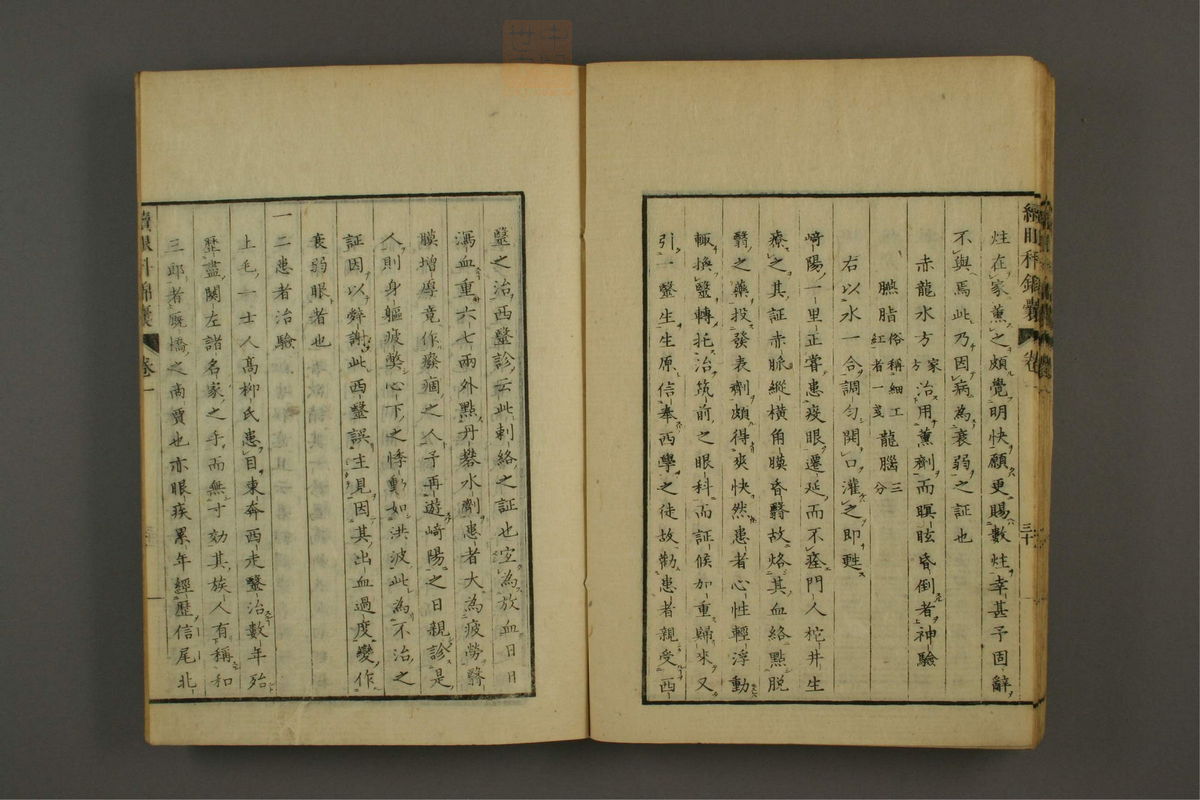 炷在家薫之頗覺明快願更賜數炷幸甚予固辭
不與焉此乃因病為衰弱之証也
赤龍水方 家方 治用薫劑而瞑眩昏倒者神驗
臙脂 俗稱細工紅者一戔 龍腦 三分
右以水一合調勻開口灌之即甦
崎陽一里正嘗患疫眼遷延而不痊門人柁井生
療之其証赤脈縱橫角膜昏翳故烙其血絡點脱
翳之藥投發表劑頗得爽快然患者心性輕浮動
輒換毉轉托治筑前之眼科而証候加重歸來又
引一毉生生原信奉西學之徒故勸患者親受西
續眼科錦囊 卷一 三十
毉之治西毉診云此刺絡之証也宜為放血日日
瀉血重六七兩外點丹礬水劑患者大為疲勞翳
膜增厚竟作癈痼之人予再遊崎陽之日親診是
人則身軀疲獘心下之悸動如洪波此為不治之
証因以辤謝此西毉誤主見因其出血過度變作
衰弱眼者也
一二患者治驗
上毛一士人髙柳氏患目東奔西走毉治數年殆
歷盡関左諸名家之手而無寸効其族人有稱和
三郎者厩橋之啇賈也亦眼疾累年經歷信尾北
續眼科錦囊 卷一